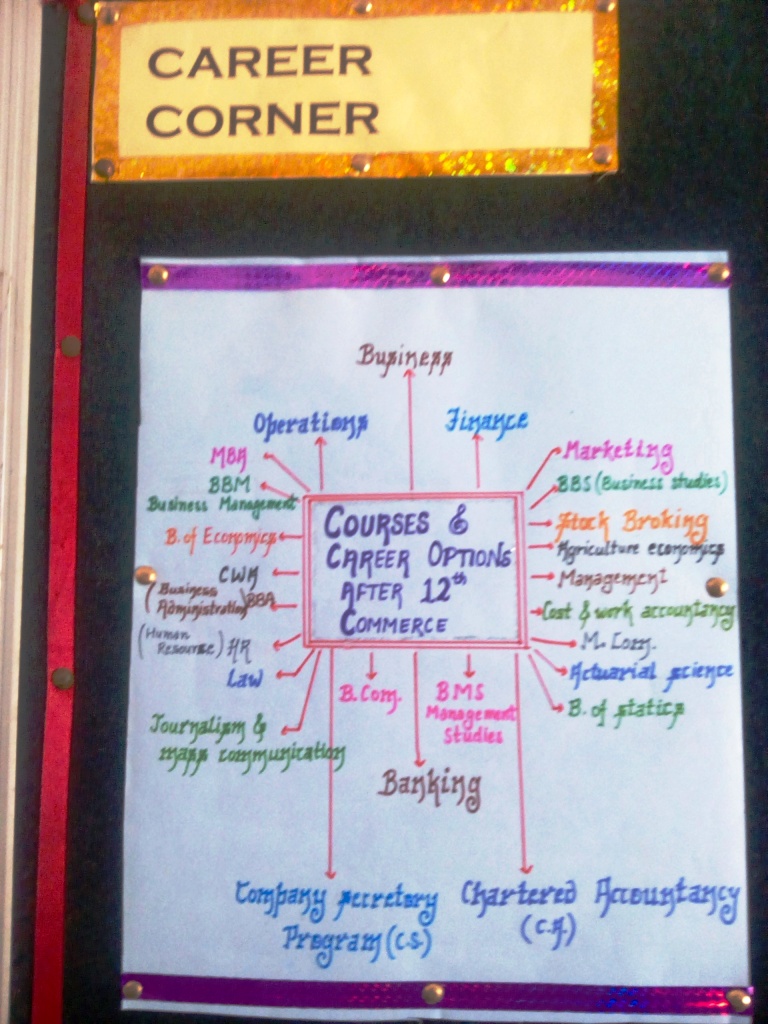 CAREER
CORNER
Business
Operations
Finance
MBA
BBM
Business Management
B. of Economics
CWA
(Business
Administration) BBA
(Human
Resource) HR
Law
Journalism &
mass communication
COURSES &
CAREER OPTIONS
AFTER 12th
COMMERCE
Marketing
BBS (Business studies)
Stock Broking
Agriculture economics
Management
Cost & work accountancy
M. Com.
Actuarial science
B. of statics
B. Com.
BMS
Management
Studies
Banking
Company secretory
Program (C.S.)
Chartered Accountancy
(C.A.)